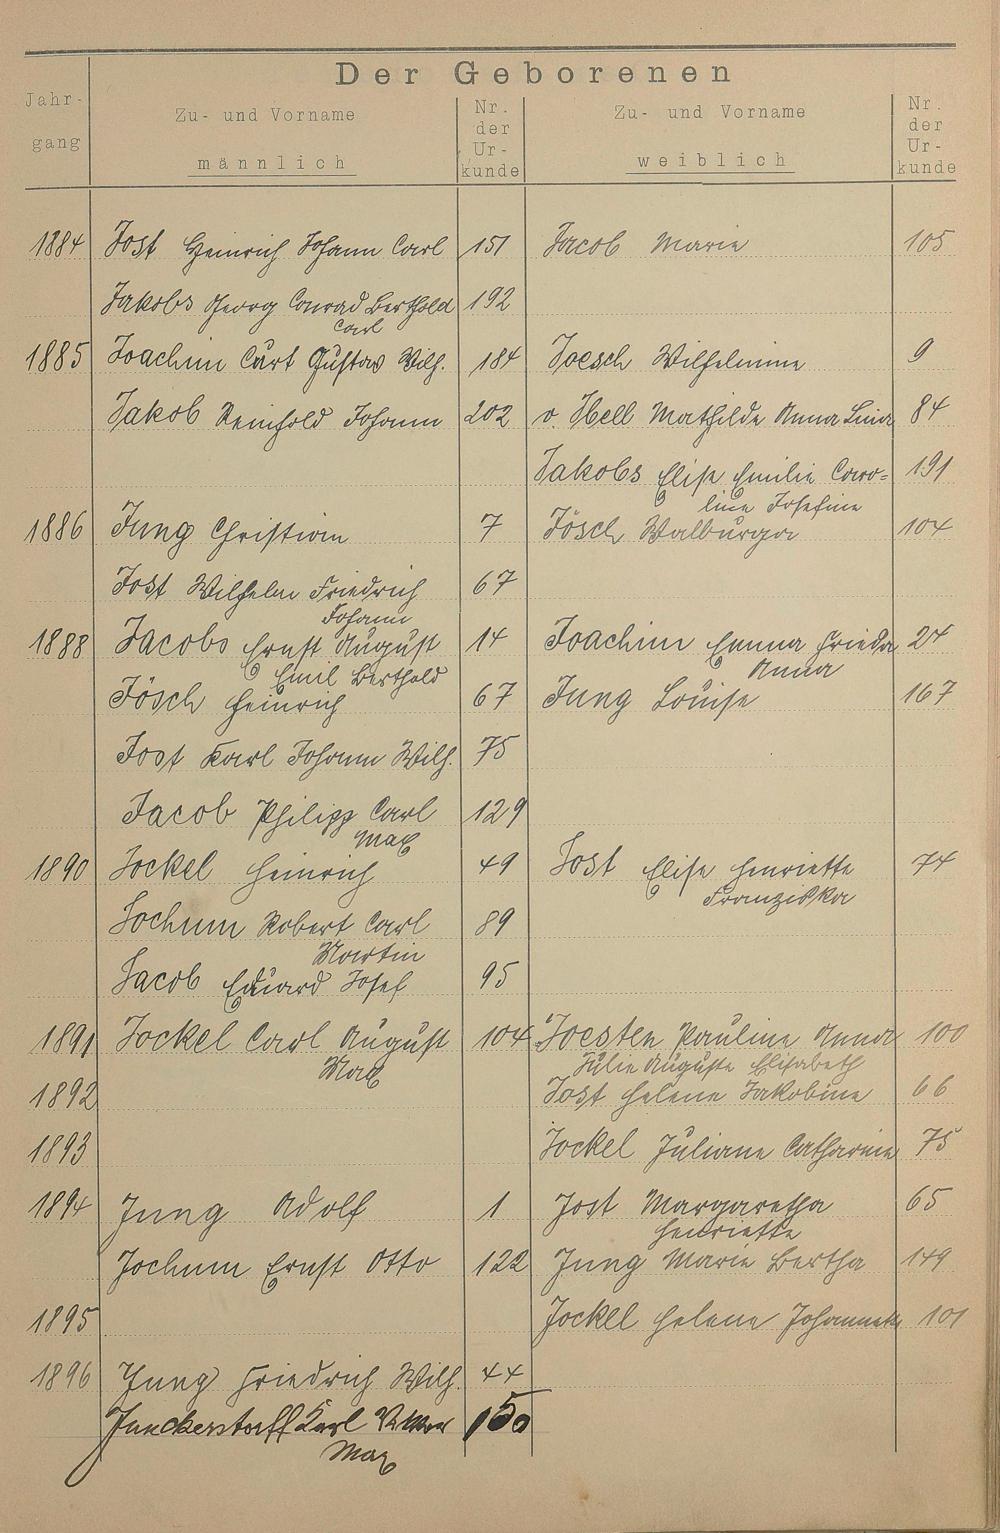 Der Geborenen
Jahr-
gang
Zu- und Vorname
männlich
Nr.
der
Ur-
kunde
Zu- und Vorname
weiblich
Nr.
der
Ur-
kunde
1884 Jost Heinrich Johann Carl 151 Jacob Marie 105
Jakobs Georg Conrad Berthold 192
Carl
1885 Joachim Curt Gustav Wilh. 184 Joesch Wilhelmine 9
Jakob Reinhold Johann 202 v. Ihell Mathilde Anna Luise 84
Jakobs Elise Emilie Caro= 191
line Josefine
1886 Jung Christian 7 Jösch Walburga 104
Jost Wilhelm Friedrich 67
Johann
1888 Jacobs Ernst August 14 Joachim Emma Frieda 24
Emil Berthold Anna
Jösch Heinrich 67 Jung Louise 167
Jost Karl Johann Wilh. 75
Jacob Philipp Carl 129
Max
1890 Jockel Heinrich 49 Jost Elise Henriette 74
Franziska
Jochum Robert Carl 89
Martin
Jacob Eduard Josef 95
1891 Jockel Carl August 104 Joesten Pauline Anna 100
Max Julie Auguste Elisabeth
1892 Jost Helene Jakobine 66
1893 Jockel Juliane Catharine 75
1894 Jung Adolf 1 Jost Margaretha 65
Henriette
Jochum Ernst Otto 122 Jung Marie Bertha 149
1895 Jockel Helene Johannette 101
1896 Jung Friedrich Wilh. 44
Junckerstorff Karl 150
Max